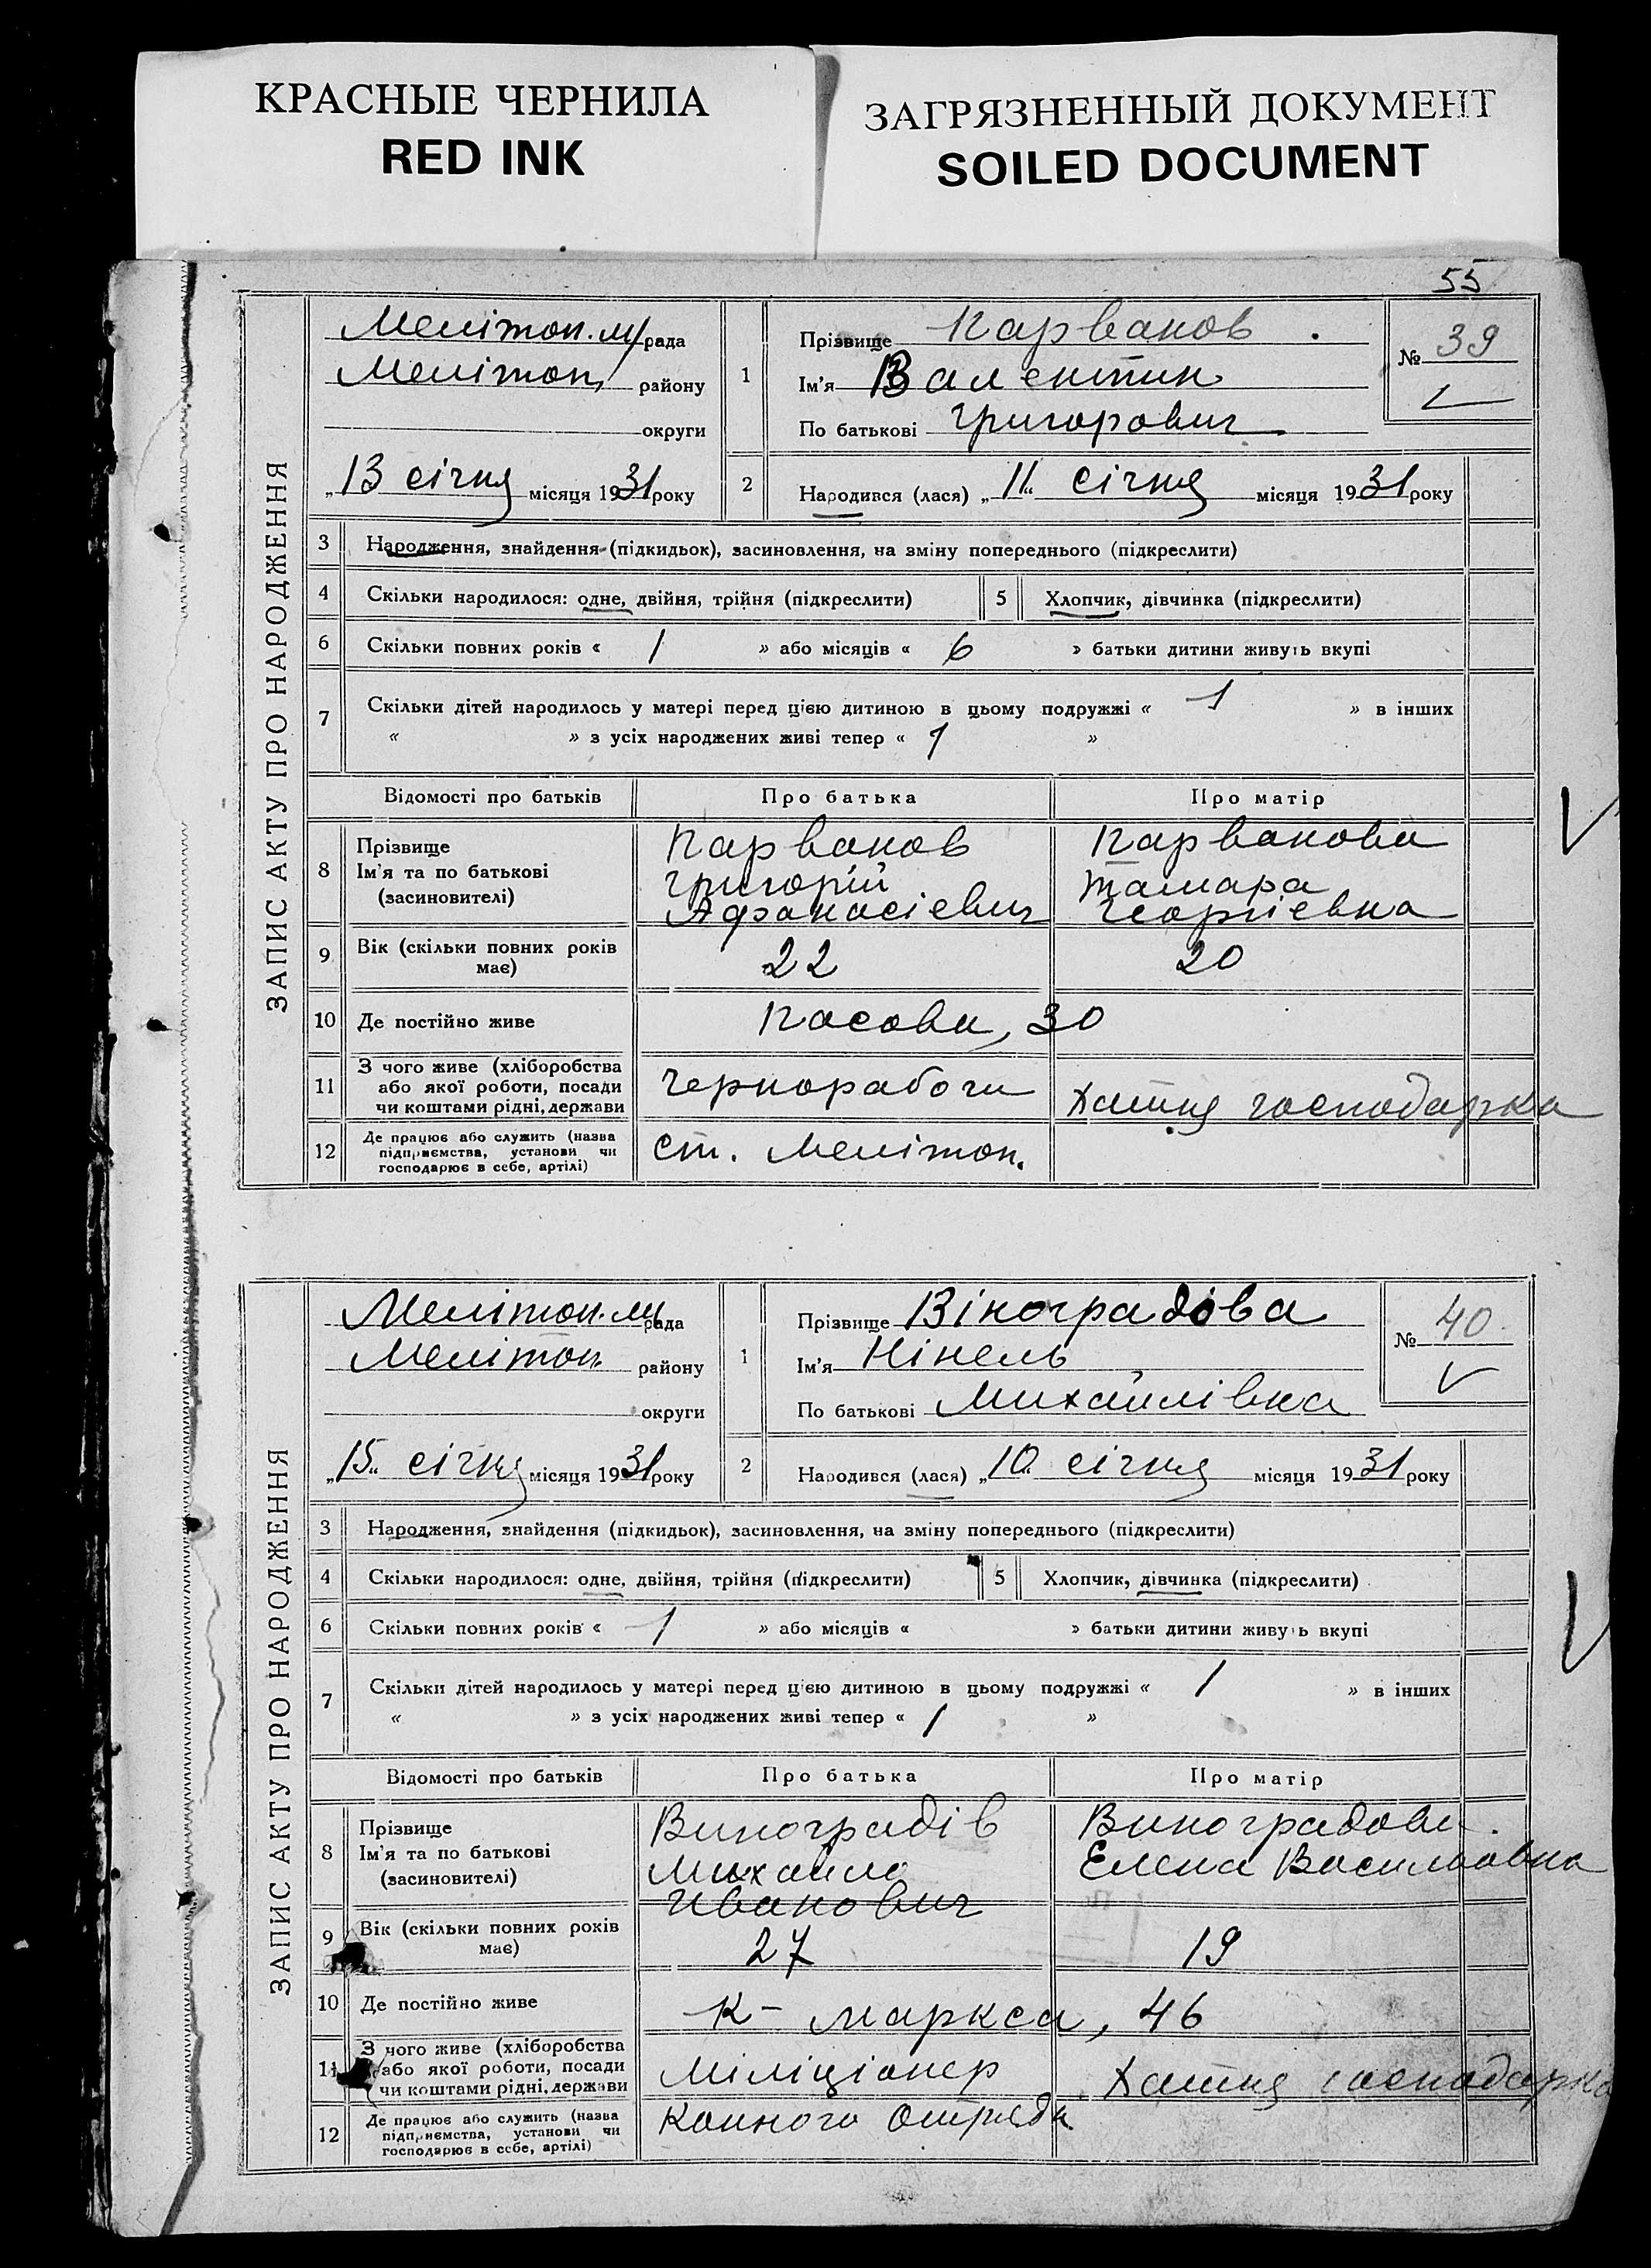 КРАСНЫЕ ЧЕРНИЛА
RED INK
ЗАГРЯЗНЕННЫЙ ДОКУМЕНТ
SOILED DOCUMENT
55
ЗАПИС АКТУ ПРО НАРОДЖЕННЯ
Мелітоп. м/рада
Мелітоп. району
округи
„13 січня місяця 1931 року
1
Прізвище Карванов
Ім'я Валентин
По батькові Григорович
№ 39
2 Народився (лася) „11" січня місяця 1931 року
3 Народження, знайдення (підкидьок), засиновлення, на зміну попереднього (підкреслити)
4 Скільки народилося: одне, двійня, трійня (підкреслити) 5 Хлопчик, дівчинка (підкреслити)
6 Скільки повних років « 1 » або місяців « 6 » батьки дитини живуть вкупі
7 Скільки дітей народилось у матері перед цією дитиною в цьому подружжі « 1 » в інших
« » з усіх народжених живі тепер « 1 »
Відомості про батьків Про батька Про матір
8 Прізвище Ім'я та по батькові (засиновителі)
Карванов Григорій Афанасієвич
Карванова Тамара Георгієвна
9 Вік (скільки повних років має) 22 20
10 Де постійно живе 30
11 З чого живе (хліборобства або якої роботи, посади чи коштами рідні, держави
Чернорабочи
Хатня господарка
12 Де працює або служить (назва підприємства, установи чи господарює в себе, артілі)
ст. Мелітоп.
ЗАПИС АКТУ ПРО НАРОДЖЕННЯ
Мелітоп. м/рада
Мелітоп. району
округи
„15" січня місяця 1931 року
1
Прізвище Віноградова
Ім'я Нінель
По батькові Михайлівна
№ 40
2 Народився (лася) „10" січня місяця 1931 року
3 Народження, знайдення (підкидьок), засиновлення, на зміну попереднього (підкреслити)
4 Скільки народилося: одне, двійня, трійня (підкреслити) 5 Хлопчик, дівчинка (підкреслити)
6 Скільки повних років « 1 » або місяців « » батьки дитини живуть вкупі
7 Скільки дітей народилось у матері перед цією дитиною в цьому подружжі « 1 » в інших
« » з усіх народжених живі тепер « 1 »
Відомості про батьків Про батька Про матір
8 Прізвище Ім'я та по батькові (засиновителі)
Виноградів Михайло Иванович
Виноградова Елена Васильовна
9 Вік (скільки повних років має) 27 19
10 Де постійно живе К-Маркса, 46
11 З чого живе (хліборобства або якої роботи, посади чи коштами рідні, держави
Міліціонер
Хатня господарка
12 Де працює або служить (назва підприємства, установи чи господарює в себе, артілі)
Конного Отряда